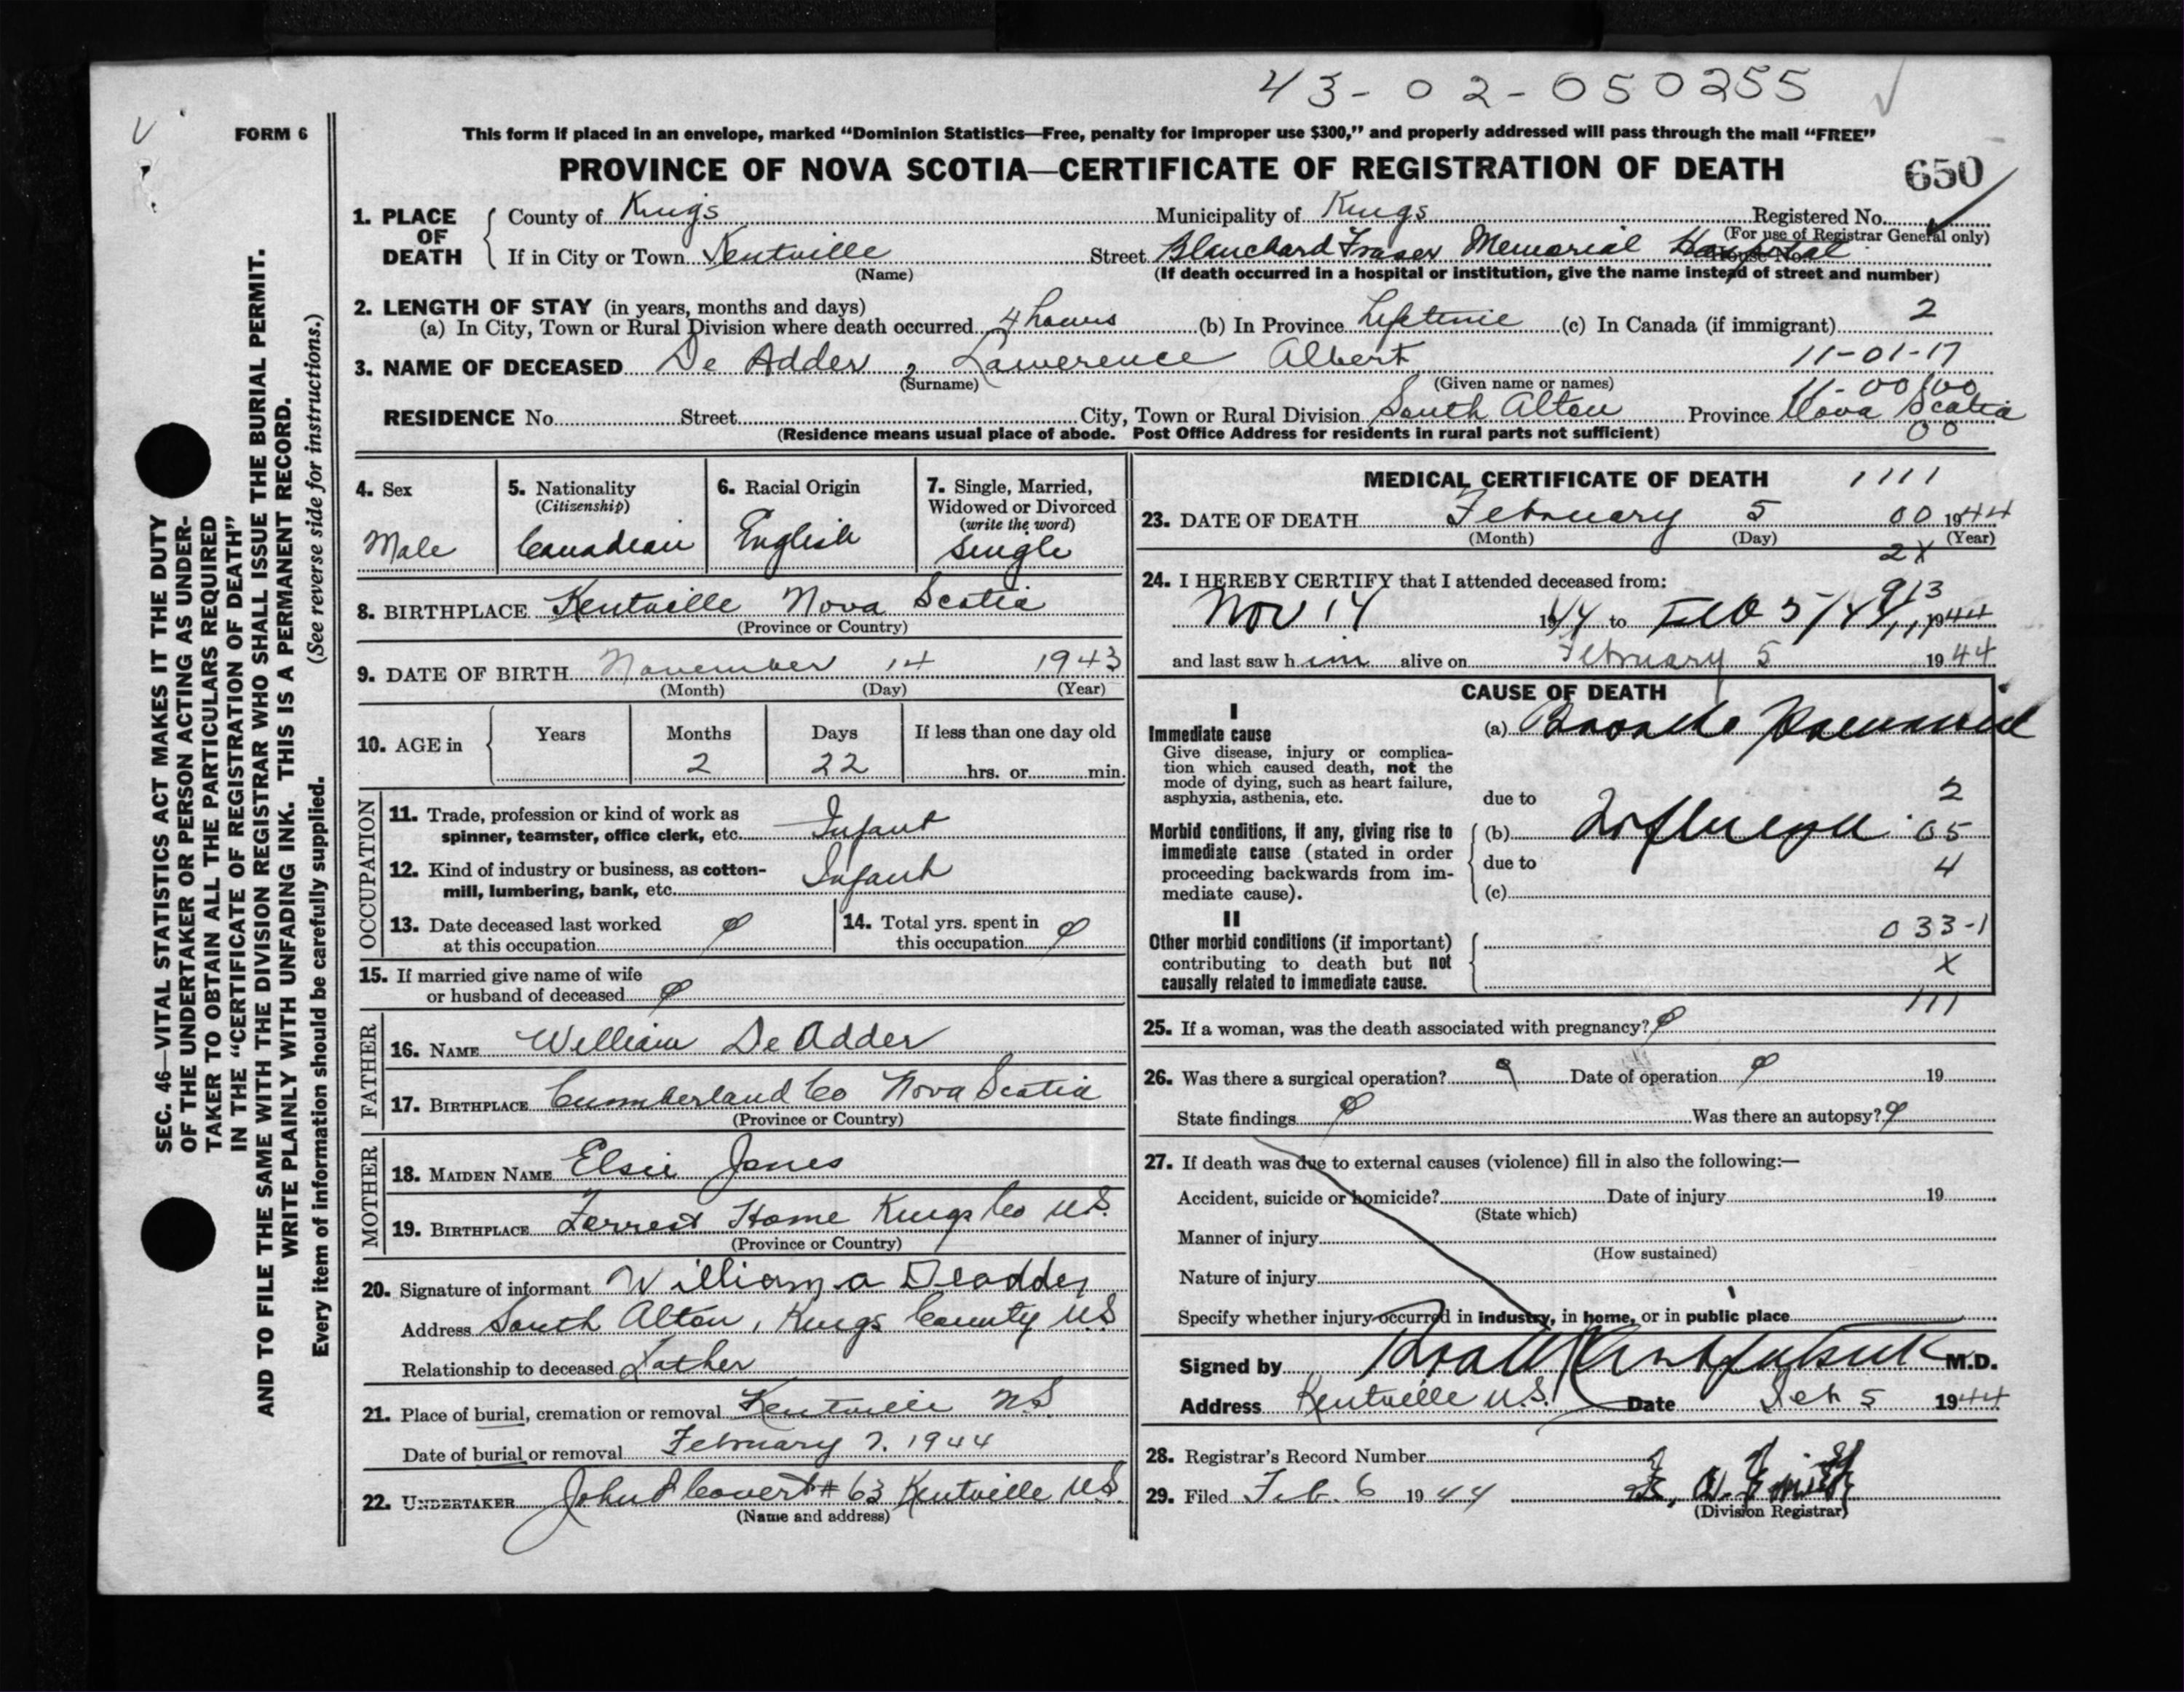 43-02-050255
FORM 6
This form if placed in an envelope, marked “Dominion Statistics—Free, penalty for improper use $300,” and properly addressed will pass through the mail “FREE”
PROVINCE OF NOVA SCOTIA—CERTIFICATE OF REGISTRATION OF DEATH
650
1. PLACE OF DEATH
County of Kings Municipality of Kings Registered No.
(For use of Registrar General only)
If in City or Town Kentville Street Blanchard Fraser Memorial Hospital House No.
(Name) (If death occurred in a hospital or institution, give the name instead of street and number)
2. LENGTH OF STAY (in years, months and days)
(a) In City, Town or Rural Division where death occurred 4 hours (b) In Province Lifetime (c) In Canada (if immigrant) 2
3. NAME OF DECEASED De Adder, Lawerence Albert 11-01-17
(Surname) (Given name or names) 11-00100
RESIDENCE No. Street City, Town or Rural Division South Alton Province Nova Scotia
(Residence means usual place of abode. Post Office Address for residents in rural parts not sufficient) 00
4. Sex
Male
5. Nationality
(Citizenship)
Canadian
6. Racial Origin
English
7. Single, Married,
Widowed or Divorced
(write the word)
Single
8. BIRTHPLACE Kentville Nova Scotia
(Province or Country)
9. DATE OF BIRTH November 14 1943
(Month) (Day) (Year)
10. AGE in Years Months Days If less than one day old
2 22 hrs. or min.
OCCUPATION
11. Trade, profession or kind of work as
spinner, teamster, office clerk, etc. Infant
12. Kind of industry or business, as cotton-
mill, lumbering, bank, etc. Infant
13. Date deceased last worked
at this occupation
14. Total yrs. spent in
this occupation
15. If married give name of wife
or husband of deceased
FATHER
16. NAME William De Adder
17. BIRTHPLACE Cumberland Co Nova Scotia
(Province or Country)
MOTHER
18. MAIDEN NAME Elsie Jones
19. BIRTHPLACE Forrest Home Kings Co N.S.
(Province or Country)
20. Signature of informant William a Deadder
Address South Alton, Kings County N.S
Relationship to deceased Father
21. Place of burial, cremation or removal Kentville N.S.
Date of burial or removal February 7. 1944
22. UNDERTAKER John Covert # 63 Kentville N.S.
(Name and address)
MEDICAL CERTIFICATE OF DEATH 1111
23. DATE OF DEATH February 5 00 1944
(Month) (Day) (Year)
2X
24. I HEREBY CERTIFY that I attended deceased from:
913
Nov 14 19 44 to Feb 5/44 1944
and last saw him alive on February 5 1944
CAUSE OF DEATH
I
Immediate cause
Give disease, injury or complica-
tion which caused death, not the
mode of dying, such as heart failure,
asphyxia, asthenia, etc.
(a) Broncho Pneumonia
due to 2
Morbid conditions, if any, giving rise to
immediate cause (stated in order
proceeding backwards from im-
mediate cause).
(b) Influenza 05
due to 4
(c)
II
Other morbid conditions (if important)
contributing to death but not
causally related to immediate cause.
033-1
X
111
25. If a woman, was the death associated with pregnancy?
26. Was there a surgical operation? Date of operation 19
State findings Was there an autopsy?
27. If death was due to external causes (violence) fill in also the following:—
Accident, suicide or homicide? Date of injury 19
(State which)
Manner of injury
(How sustained)
Nature of injury
Specify whether injury occurred in industry, in home, or in public place
Signed by M.D.
Address Kentville N.S. Date Feb 5 1944
28. Registrar’s Record Number
29. Filed Feb. 6 1944
(Division Registrar)
SEC. 46—VITAL STATISTICS ACT MAKES IT THE DUTY
OF THE UNDERTAKER OR PERSON ACTING AS UNDER-
TAKER TO OBTAIN ALL THE PARTICULARS REQUIRED
IN THE “CERTIFICATE OF REGISTRATION OF DEATH”
AND TO FILE THE SAME WITH THE DIVISION REGISTRAR WHO SHALL ISSUE THE BURIAL PERMIT.
WRITE PLAINLY WITH UNFADING INK. THIS IS A PERMANENT RECORD.
Every item of information should be carefully supplied. (See reverse side for instructions.)